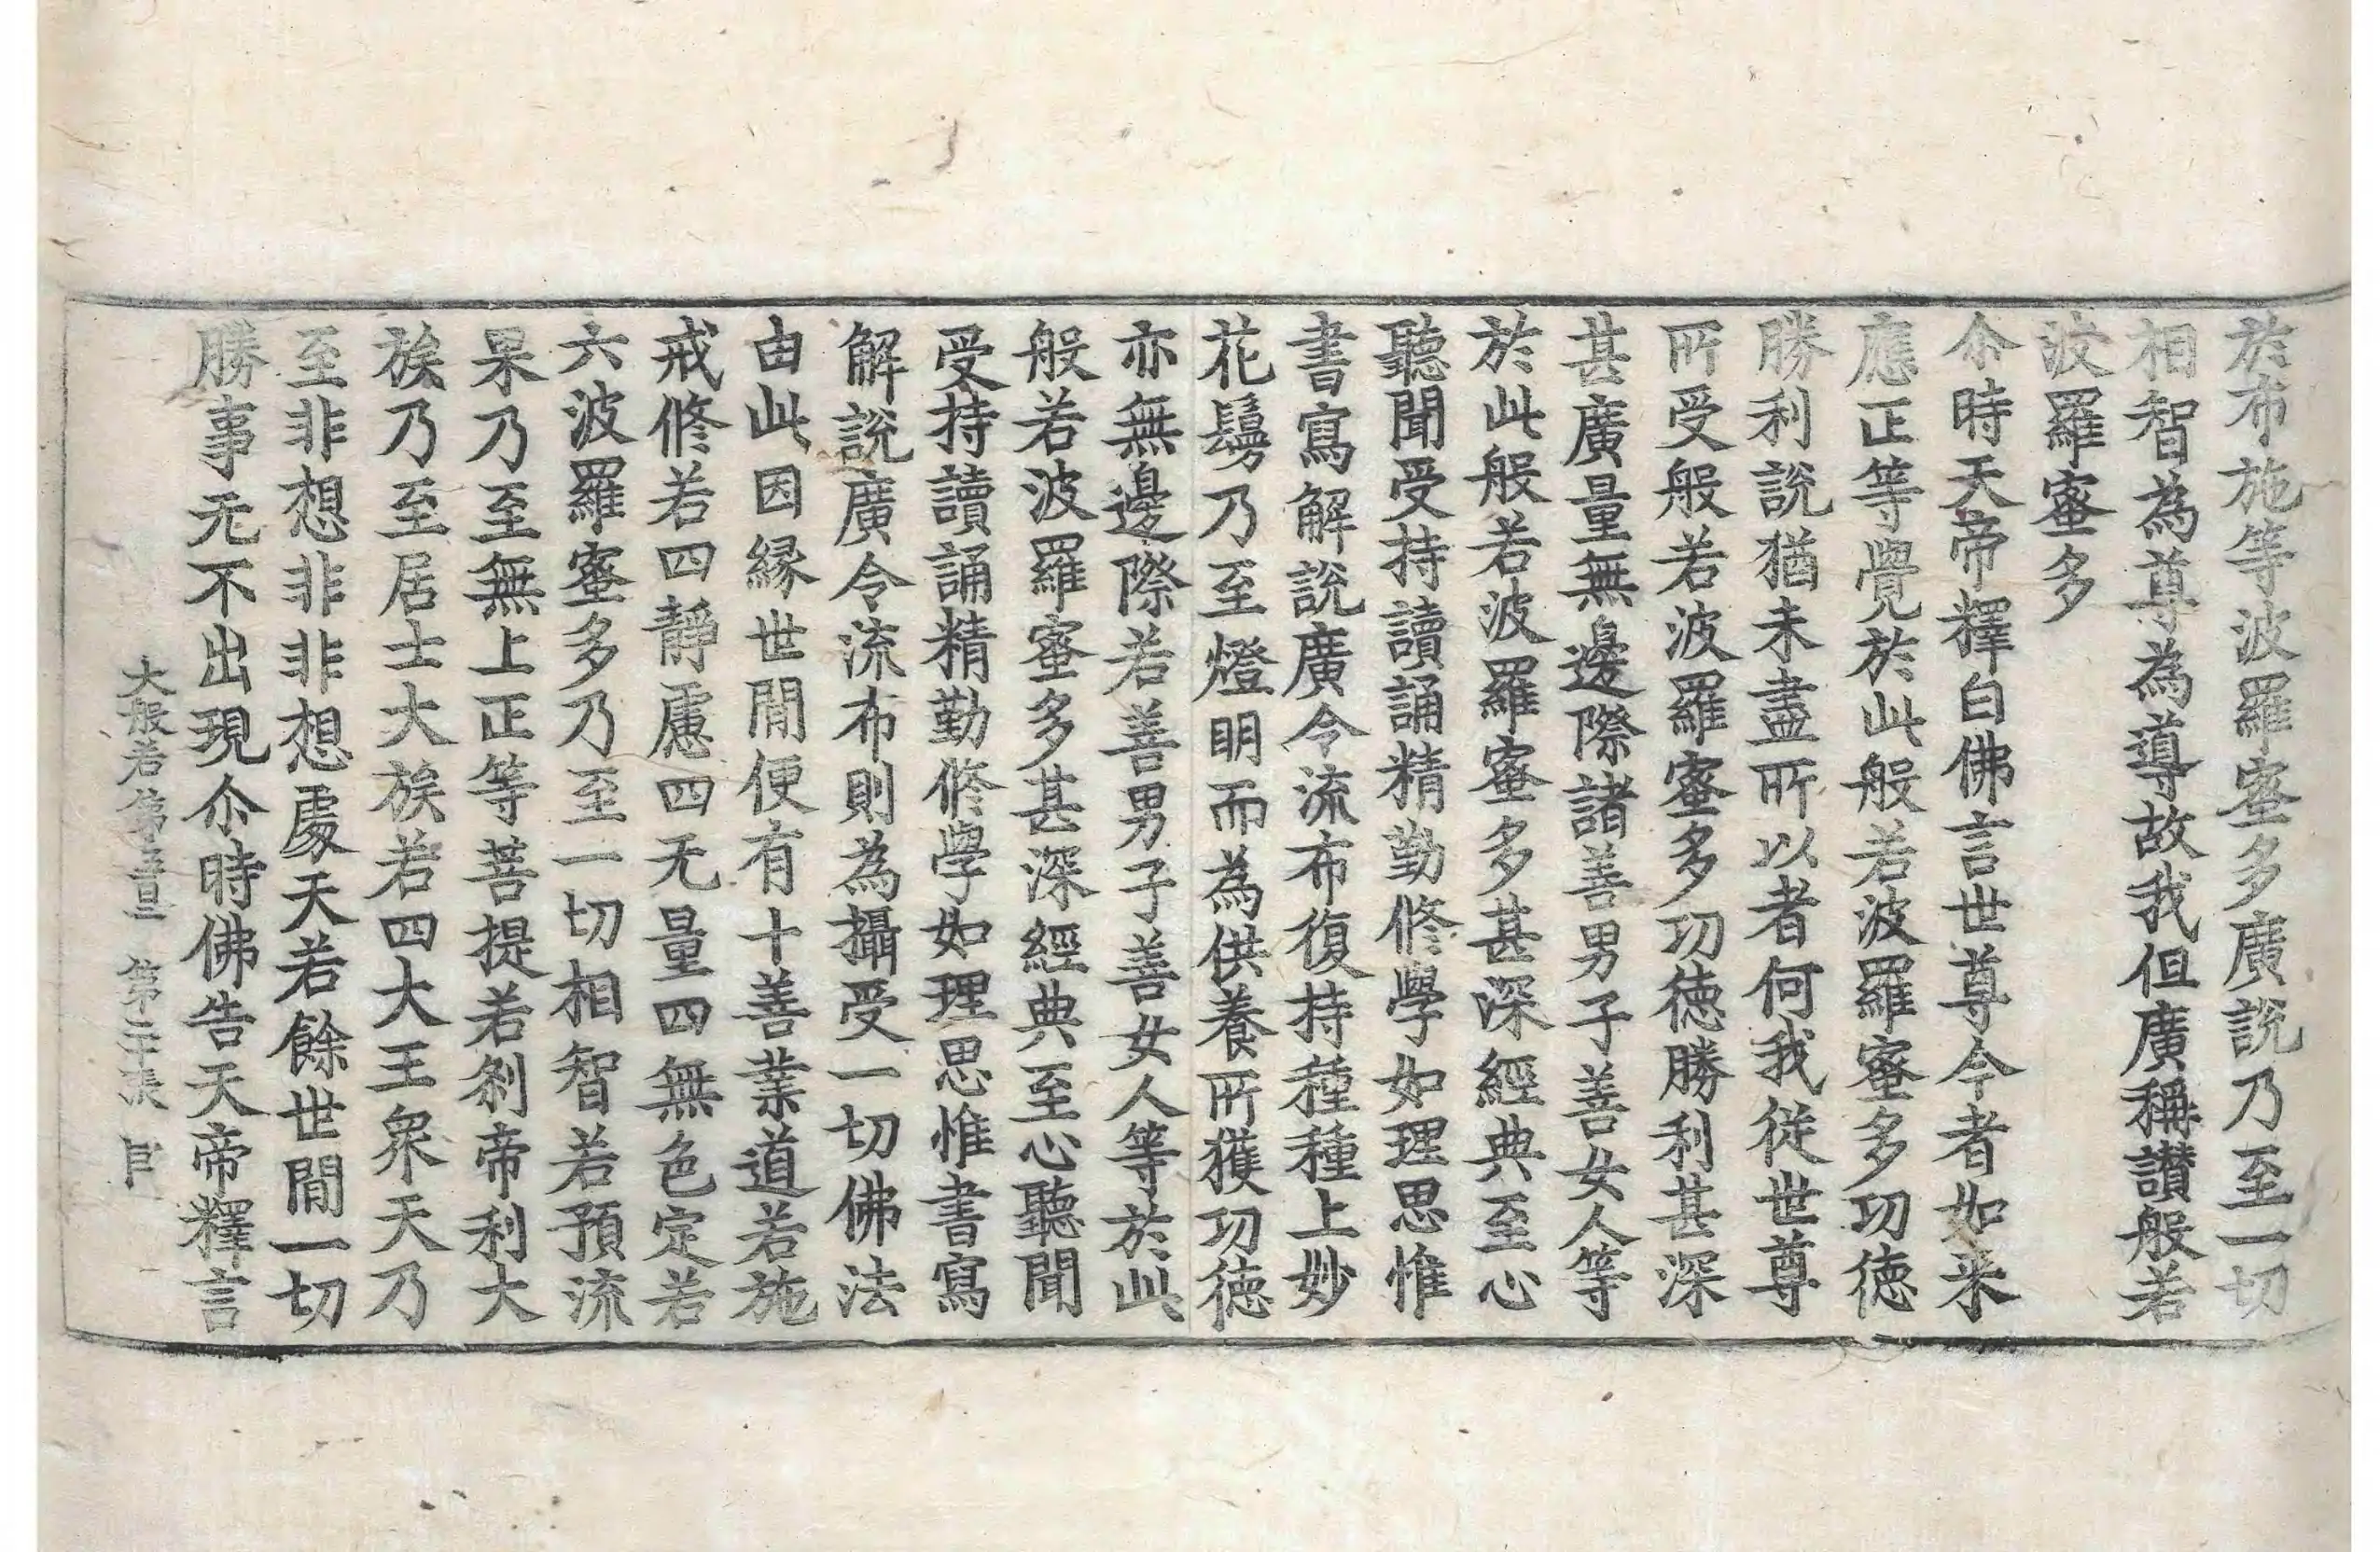 於布施等波羅蜜多廣說乃至一切
相智為尊為導故我但廣稱讃般若
波羅蜜多
尒時天帝釋白佛言世尊今者如来
應正等覺於此般若波羅蜜多功徳
勝利說猶未盡所以者何我從世尊
所受般若波羅蜜多功徳勝利甚深
甚廣量無邊際諸善男子善女人等
於此般若波羅蜜多甚深經典至心
聽聞受持讀誦精勤修學如理思惟
書寫解說廣令流布復持種種上妙
花鬘乃至燈明而為供養所獲功徳
亦無邊際若善男子善女人等於此
般若波羅蜜多甚深經典至心聽聞
受持讀誦精勤修學如理思惟書寫
解說廣令流布則為攝受一切佛法
由此因縁世閒便有十善業道若施
戒修若四靜慮四无量四無色定若
六波羅蜜多乃至一切相智若預流
果乃至無上正等菩提若剎帝利大
族乃至居士大族若四大王衆天乃
至非想非非想處天若餘世閒一切
勝事无不出現尒時佛告天帝釋言
大般若第 第二十張